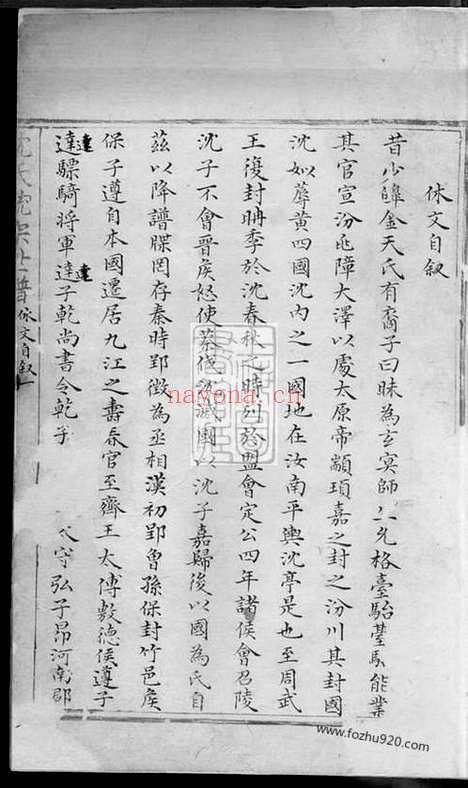 休文自叙
昔少皥金天氏有裔子曰昧為玄冥師 允格臺駘臺駘能業
其官宣汾洮障大澤以處太原帝顓頊嘉之封之汾川其封國
沈姒蓐黃四國沈内之一國地在汝南平輿沈亭是也至周武
王復封聃季於沈春秋之時列於盟會定公四年諸侯會召陵
沈子不會晉侯怒使蔡伐沈滅國以沈子嘉歸後以國為氏自
茲以降譜牒罔存秦時郢徵為丞相漢初郢曾孫保封竹邑侯
保子遵自本國遷居九江之壽春官至齊王太傅敷德侯遵子
達驃騎將軍達子乾尚書令乾子 太守弘子昂河南郡
達
達
休文自叙
nayona.cn
www.fozhu920.com